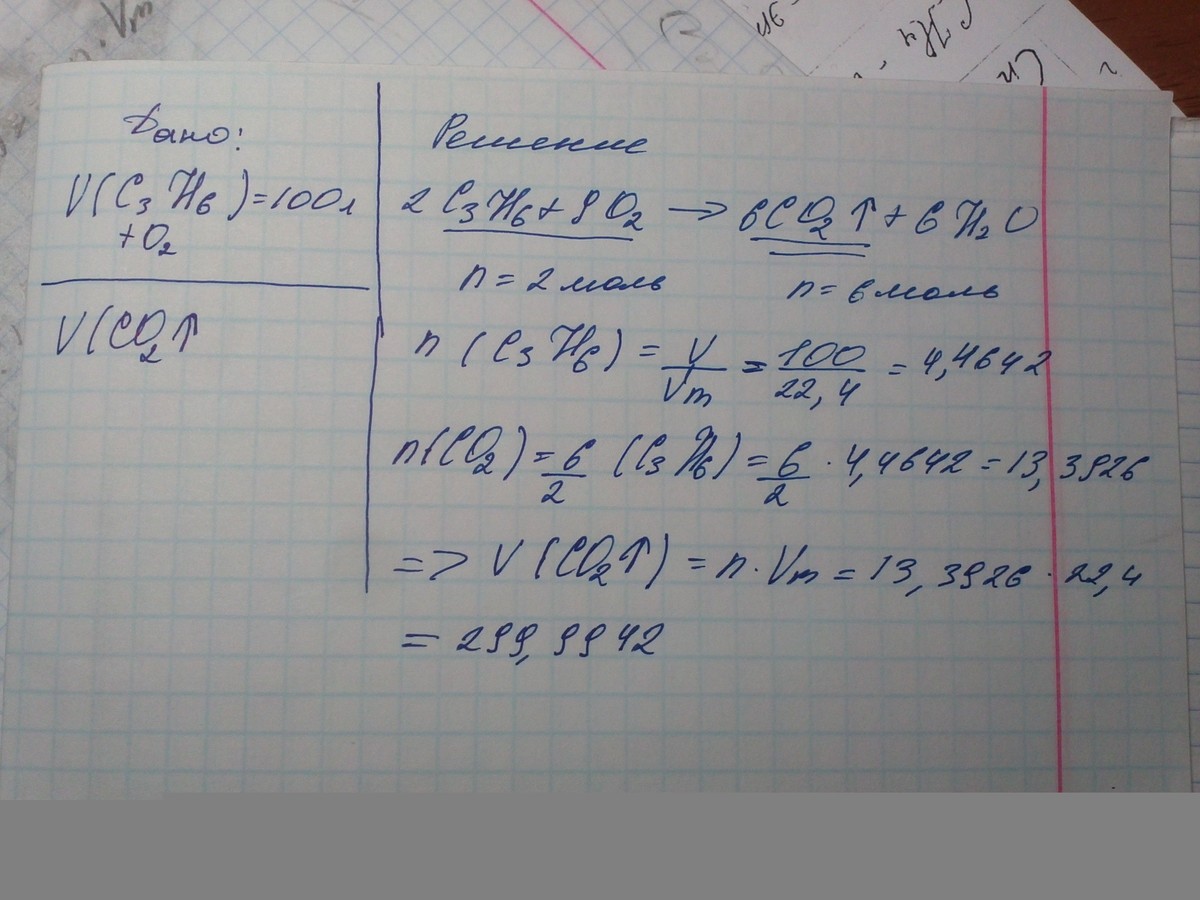 Vm
Дано:
V(C₃H₆)=100л
+O₂
V(CO₂↑
Решение
2C₃H₆+9O₂ → 6CO₂↑+6H₂O
n=2моль n=6моль
n(C₃H₆)=V/Vm=100/22,4=4,4642
n(CO₂)=6/2(C₃H₆)=6/2·4,4642=13,3926
=> V(CO₂↑)=n·Vm=13,3926·22,4
=299,9942